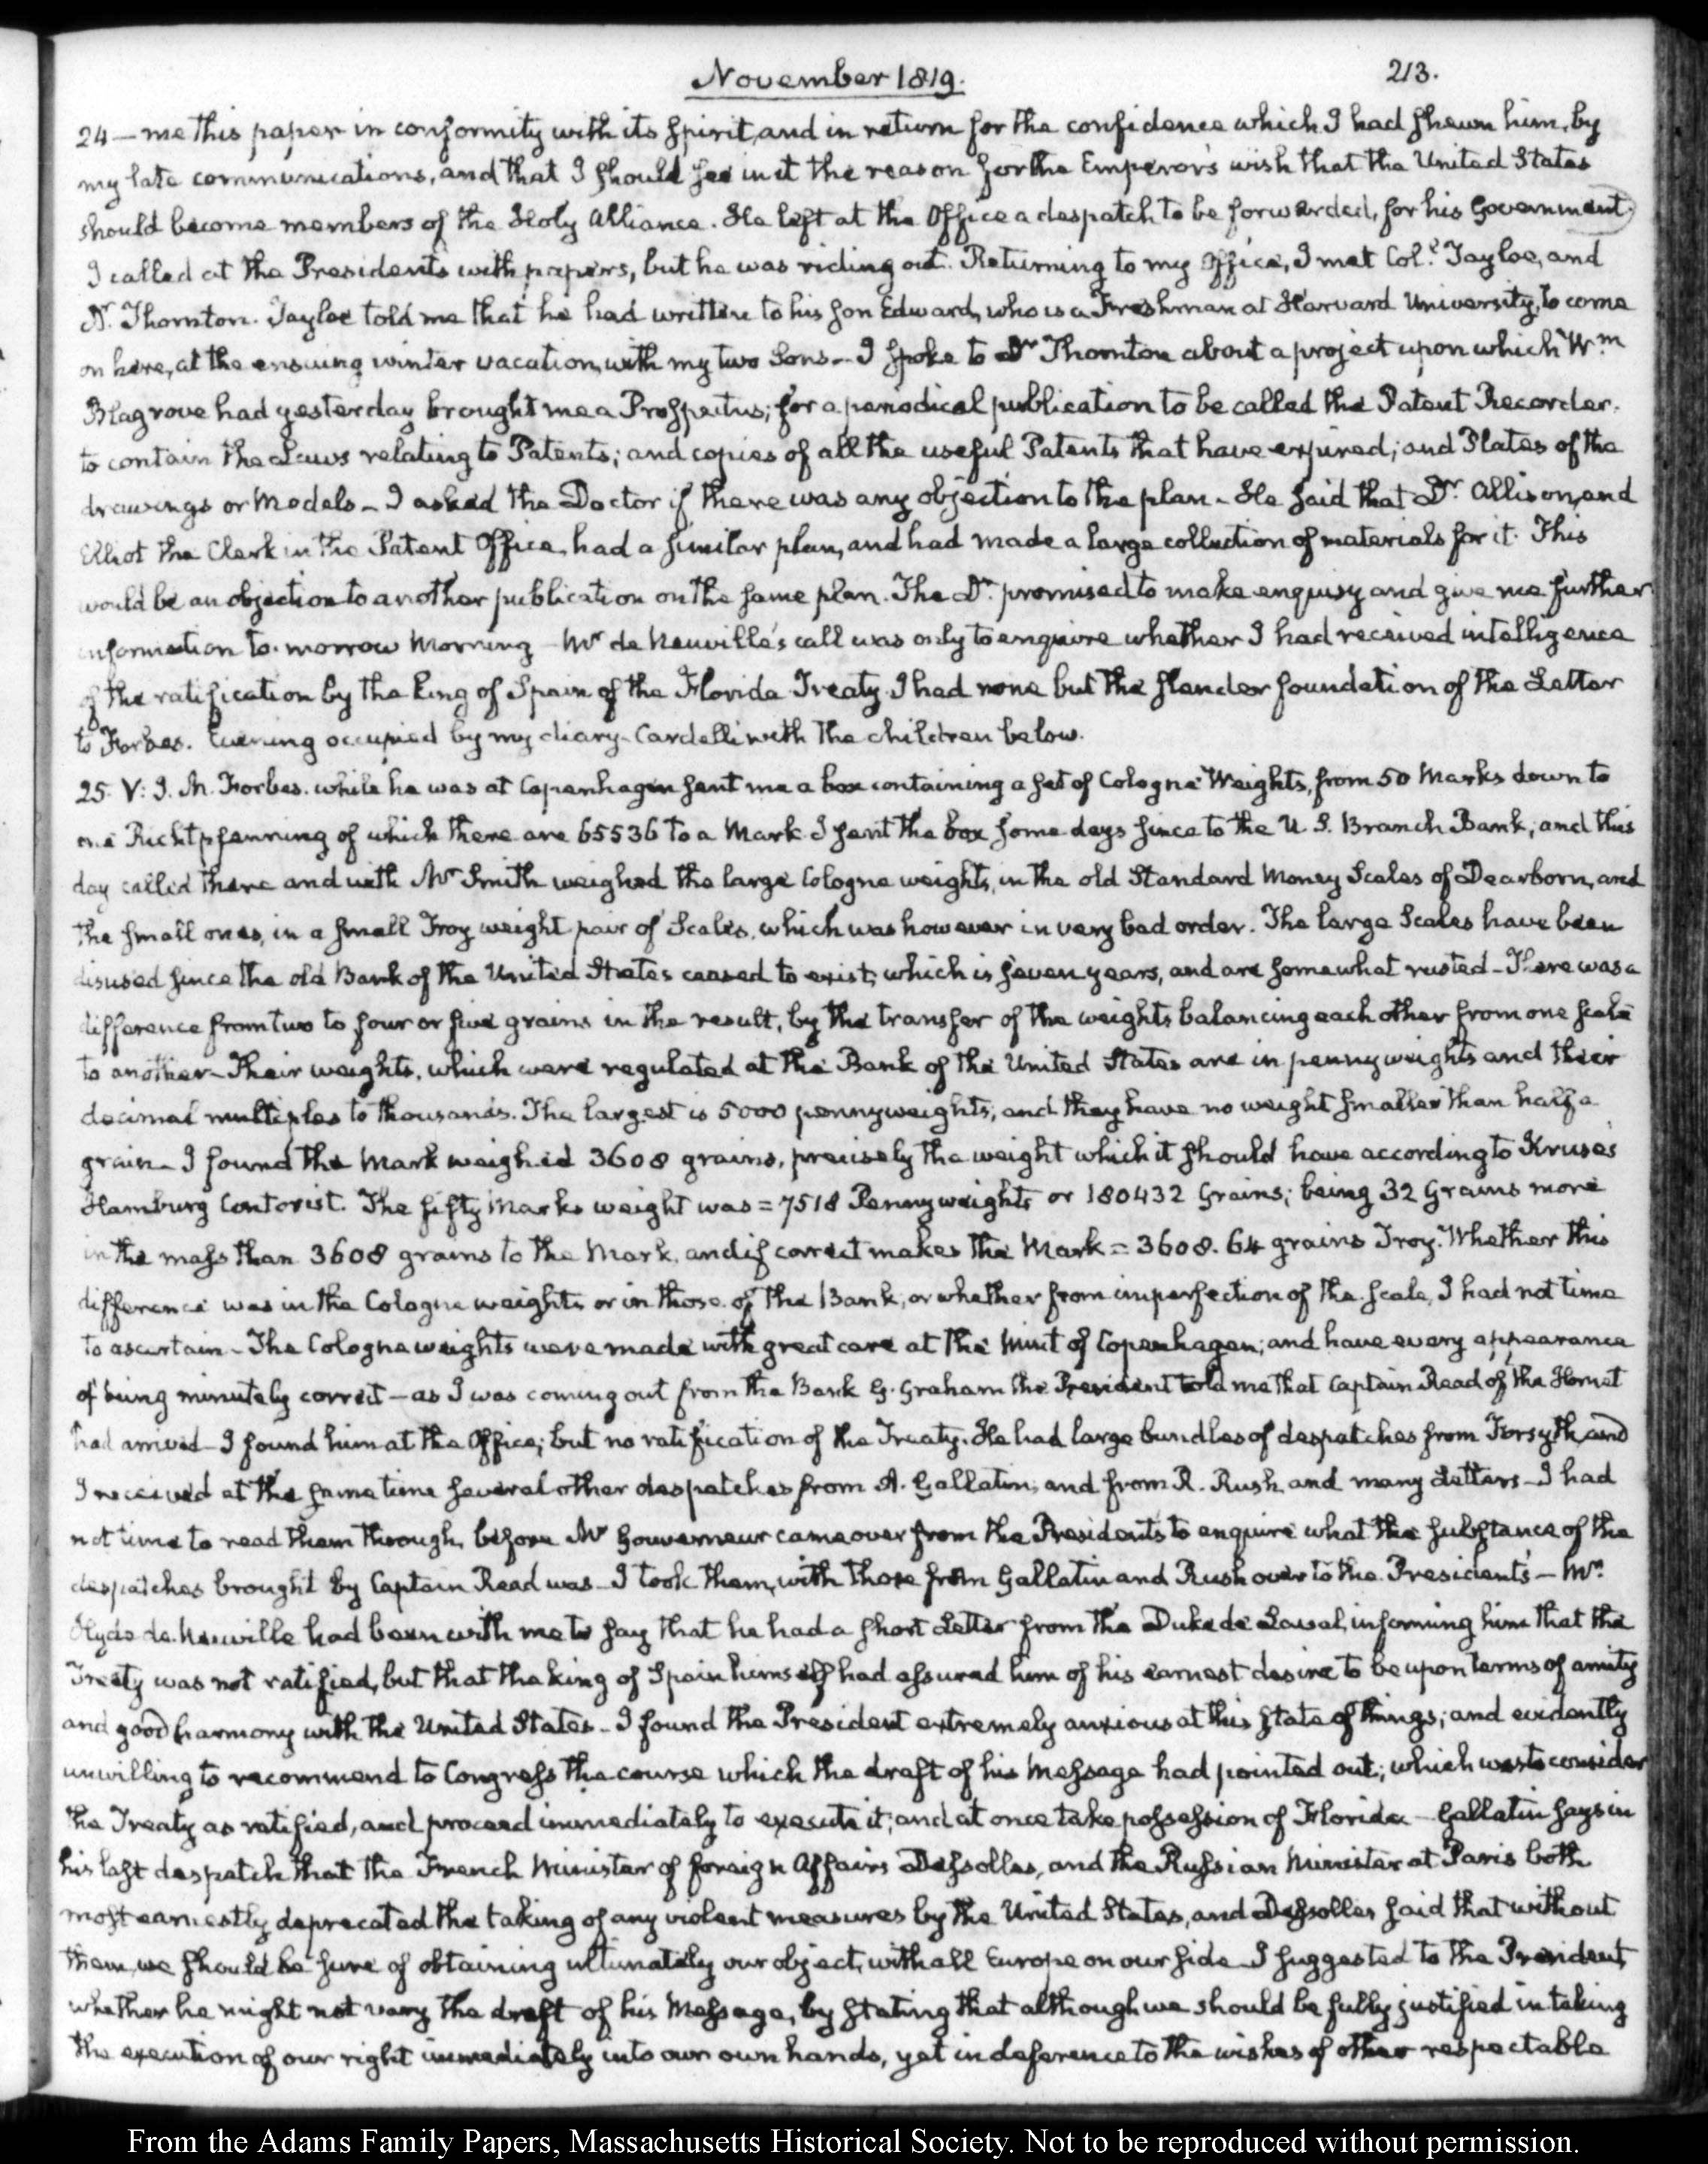 November 1819.
213.
24 — me this paper in conformity with its spirit, and in return for the confidence which I had shewn him, by
my late communications, and that I should see in it the reason for the Emperor's wish that the United States
should become members of the Holy Alliance. He left at the Office a despatch to be forwarded, for his Government.
I called at the President's with papers, but he was riding out. Returning to my Office, I met Col.l Tayloe, and
Dr. Thornton. Tayloe told me that he had written to his son Edward, who is a Freshman at Harvard University, to come
on here, at the ensuing winter vacation, with my two Sons — I spoke to Dr Thornton about a project upon which Wm
Blagrove had yesterday brought me a Prospectus; for a periodical publication to be called the Patent Recorder.
to contain the Laws relating to Patents; and copies of all the useful Patents that have expired; and Plates of the
drawings or Models — I asked the Doctor if there was any objection to the plan — He said that Dr. Allison, and
Elliot the Clerk in the Patent Office, had a similar plan, and had made a large collection of materials for it. This
would be an objection to another publication on the same plan. The Dr. promised to make enquiry and give me further
information to-morrow Morning — Mr de Neuville's call was only to enquire whether I had received intelligence
of the ratification by the King of Spain of the Florida Treaty. I had none but the slender foundation of the Letter
to Forbes. Evening occupied by my diary — Cardelli with the children below.
25. V: J. M. Forbes. while he was at Copenhagen sent me a box containing a set of Cologne Weights, from 50 Marks down to
one Richtpfenning of which there are 65536 to a Mark. I sent the box some days since to the U. S. Branch Bank; and this
day called there and with Mr Smith weighed the large Cologne weights, in the old Standard Money Scales of Dearborn, and
the small ones, in a small Troy weight pair of Scales, which was however in very bad order. The large Scales have been
disused since the old Bank of the United States ceased to exist, which is seven years, and are somewhat rusted — There was a
difference from two to four or five grains in the result, by the transfer of the weights balancing each other from one scale
to another — Their weights, which were regulated at the Bank of the United States are in pennyweights and their
decimal multiples to thousands. The largest is 5000 pennyweights; and they have no weight smaller than half a
grain — I found the Mark weighed 3608 grains, precisely the weight which it should have according to Kruse's
Hamburg Contorist. The fifty Marks weight was = 7518 Pennyweights or 180432 Grains; being 32 Grains more
in the mass than 3608 grains to the Mark, and if correct makes the Mark = 3608.64 grains Troy. Whether this
difference was in the Cologne weights or in those of the Bank, or whether from imperfection of the scale, I had not time
to ascertain — The Cologne weights were made with great care at the Mint of Copenhagen; and have every appearance
of being minutely correct — as I was coming out from the Bank G. Graham the President told me that Captain Read of the Hornet
had arrived — I found him at the Office; but no ratification of the Treaty. He had large bundles of despatches from Forsyth, and
I received at the same time several other despatches from A. Gallatin, and from R. Rush, and many Letters — I had
not time to read them through, before Mr Gouverneur came over from the President's to enquire what the substance of the
despatches brought by Captain Read was — I took them, with those from Gallatin and Rush over to the President's — Mr.
Hyde de Neuville had been with me to say that he had a short Letter from the Duke de Laval, informing him that the
Treaty was not ratified, but that the king of Spain himself had assured him of his earnest desire to be upon terms of amity
and good harmony with the United States — I found the President extremely anxious at this state of things; and evidently
unwilling to recommend to Congress the course which the draft of his Message had pointed out; which was to consider
the Treaty as ratified, and proceed immediately to execute it; and at once take possession of Florida — Gallatin says in
his last despatch that the French Minister of foreign Affairs Dessolles, and the Russian Minister at Paris both
most earnestly deprecated the taking of any violent measures by the United States, and Dessolles said that without
them, we should be sure of obtaining ultimately our object, with all Europe on our side — I suggested to the President,
whether he might not vary the draft of his Message, by stating that although we should be fully justified in taking
the execution of our right immediately into our own hands, yet in deference to the wishes of other respectable
From the Adams Family Papers, Massachusetts Historical Society. Not to be reproduced without permission.